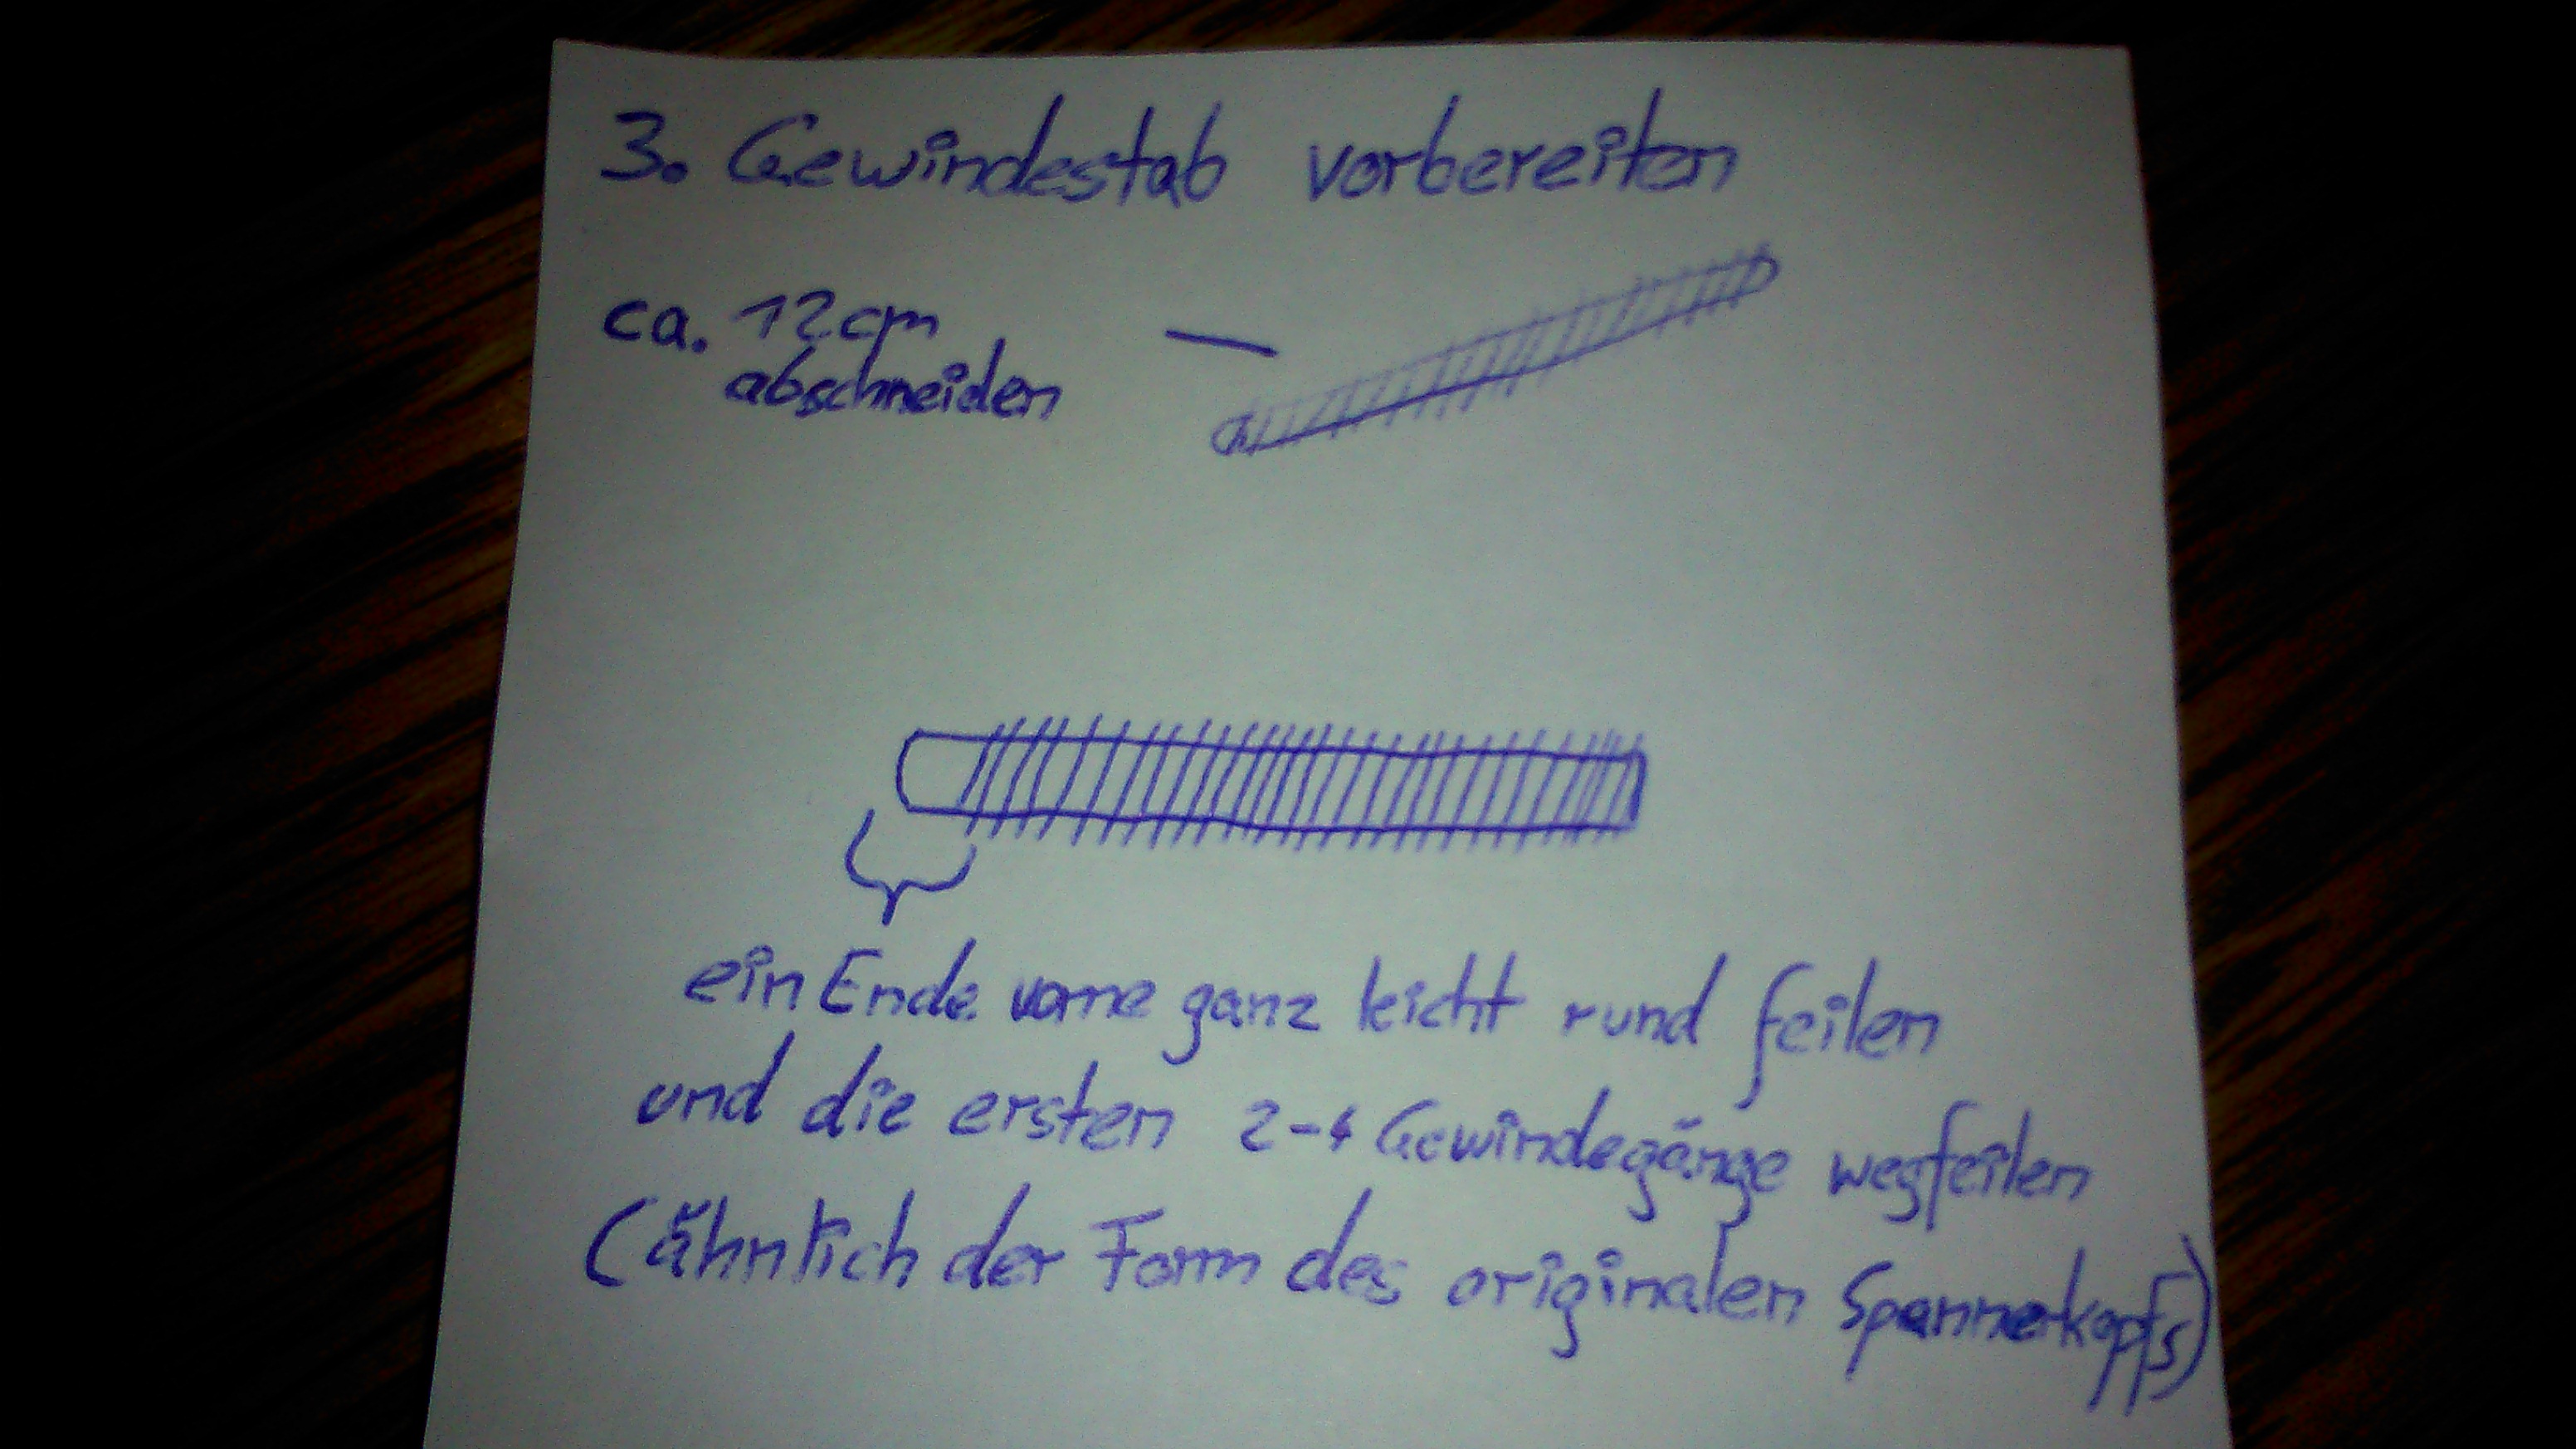 3. Gewindestab vorbereiten
ca. 12cm
abschneiden
ein Ende vorne ganz leicht rund feilen
und die ersten 2-4 Gewindegänge wegfeilen
(ähnlich der Form des originalen Spannerkopfs)